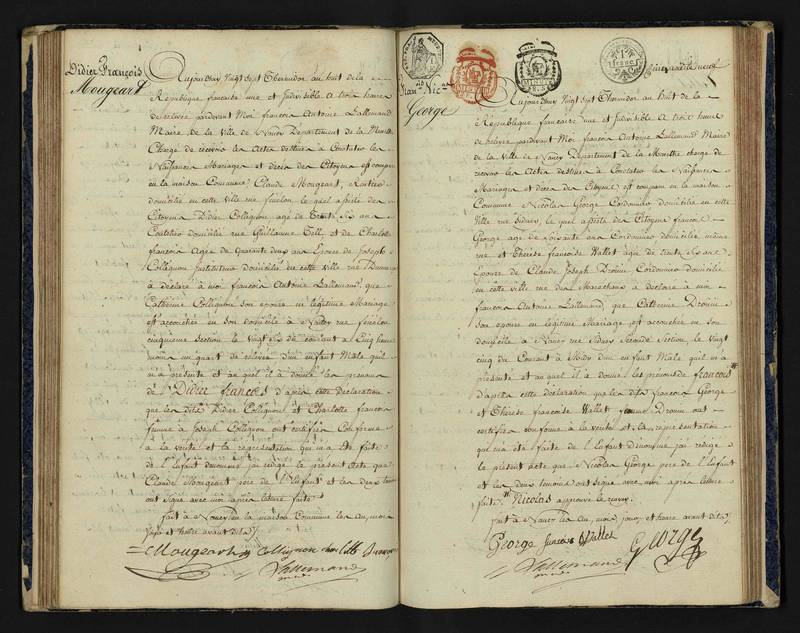 Didier François
Mougeart
Aujourdhuy Vingt Sept Thermidor an huit de la
République française une et Indivisible à trois heures
de relevée pardevant Moi françois Antoine Lallemand
Maire de la Ville de Nancy Département de la Meurthe
Chargé de recevoir les Actes destinés à Constater les
Naissances Mariages et décès des Citoyens est comparu
en la maison Commune, Claude Mougeart, Rentier
domicilié en cette ville rue fénélon, le quel assisté des
Citoyens Didier Collignon agé de Trente Six ans
Coutelier domicilié rue Guillaume Tell, et de Charlotte
françois Agée de quarante deux ans Epouse de Joseph
Collignon Instituteur domicilié en cette ville rue
à déclaré à moi françois Antoine Lallemand, que
Catherine Collignon son epouse en légitime Mariage
est accouchée en son domicile à Nancy rue fénélon
cinquieme section le Vingt Six du courant à Cinq heures
moins un quart de relevée d'un enfant Male qu'il
m'a présenté et au quel il a donné les prenoms
de Didier françois d'après cette déclaration
que les dits Didier Collignon et Charlotte françois
femme à Joseph Collignon ont certifiée Conforme
à la vérité et la représentation qui m'a été faite
de l'Enfant dénommé j'ai rédigé le présent Acte que
Claude Mougeart pere de l'Enfant et les deux temoins
ont signé avec moi après lecture faite
fait à Nancy en la maison Commune les an, mois
jour et heure avant dits
Mougeart Collignon
Lallemand
fran.s Nic.as
George
MINUTE
1 franc
Aujourdhuy Vingt Sept Thermidor an huit de la
République française une et Indivisible à trois heures
de relevée pardevant Moi françois Antoine Lallemand Maire
de la Ville de Nancy Département de la Meurthe chargé de
recevoir les Actes destinés à Constater les Naissances
Mariages et décès des Citoyens est comparu en la maison
Commune Nicolas George Cordonnier domicilié en cette
Ville rue Sidney, le quel assisté des Citoyens françois
George agé de Soixante ans Cordonnier domicilié même
rue et Thérèse françoise Wallet agée de trente Six ans
Epouse de Claude Joseph Drouin Cordonnier domicilié
en cette ville rue des Marechaux a déclaré a moi
françois Antoine Lallemand, que Catherine Drouin
son epouse en légitime Mariage est accouchée en son
domicile à Nancy rue Sidney Seconde Section, le Vingt
cinq du Courant à Midy d'un enfant Male qu'il m'a
présenté et au quel il a donné les prénoms de françois
d'après cette déclaration que les dits françois George
et Thérèse françoise Wallet femme Drouin ont
certifiée conforme à la vérité et la représentation
qui m'a été faite de l'Enfant dénommé j'ai redigé
le present acte que Nicolas George pere de l'Enfant
et les deux temoins ont signé avec moi après lecture
faite. Nicolas approuvé le renvoy.
fait à Nancy les an, mois, jour, et heure avant dits
George françoise Wallet George
Lallemand